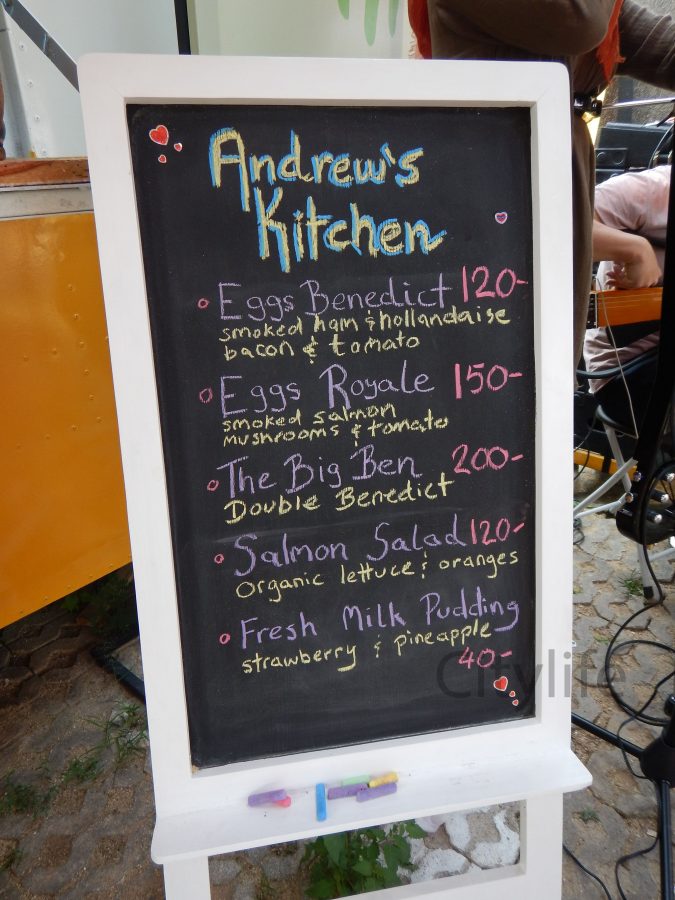 Andrew's
Kitchen
Eggs Benedict 120-
smoked ham & hollandaise
bacon & tomato
Eggs Royale 150-
smoked salmon
mushrooms & tomato
The Big Ben 200-
Double Benedict
Salmon Salad 120-
Organic lettuce & oranges
Fresh Milk Pudding
strawberry & pineapple
40-
Citylife